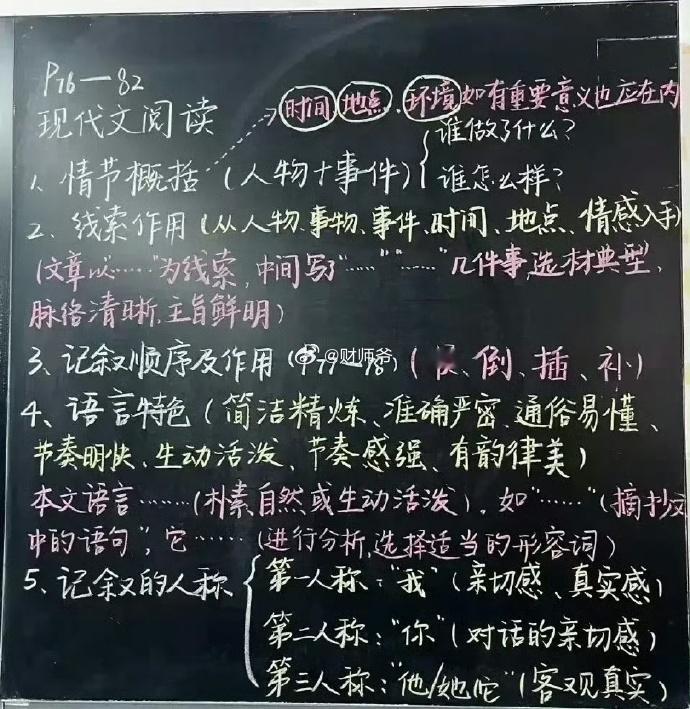 P76—82
现代文阅读
时间 地点、环境如有重要意义也应在内
谁做了什么?
1、情节概括（人物+事件）
谁怎么样?
2、线索作用（从人物、事物、事件、时间、地点、情感入手）
（文章以……"为线索,中间写了"……""……"几件事,选材典型、
脉络清晰,主旨鲜明）
3、记叙顺序及作用（
@财师爷
）（、倒、插、补）
4、语言特色（简洁精炼、准确严密、通俗易懂、
节奏明快、生动活泼、节奏感强、有韵律美）
本文语言……（朴素自然或生动活泼）,如"……"（摘抄文
中的语句",它……（进行分析,选择适当的形容词）
5、记叙的人称
第一人称:"我"（亲切感、真实感）
第二人称:"你"（对话的亲切感）
第三人称:"他/她/它"（客观真实）